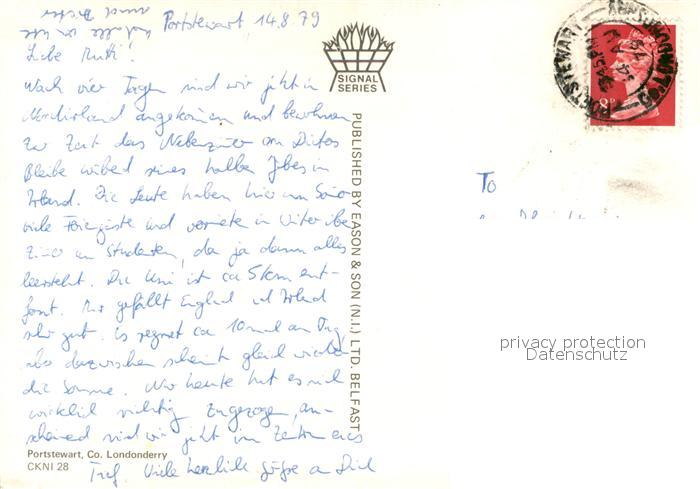 Portstewart 14.8.79
Liebe Ruth!
Nach vier Tagen sind wir jetzt in
Nordirland angekommen und bewohnen
zur Zeit das Nebenzimmer von
Bleibe während seines halben Jahres in
Irland. Die Leute haben hier im Sommer
viele Feriengäste und vermieten im Winter ihre
Zimmer an Studenten, da ja dann alles
leersteht. Die Uni ist ca 5 km ent-
fernt. Mir gefällt England und Irland
sehr gut. Es regnet ca 10 mal am Tag,
aber dazwischen scheint gleich wieder
die Sonne. Nur heute hat es sich
wirklich richtig zugezogen, an-
scheinend sind wir jetzt im Zentrum eines
Tief. Viele herzliche Grüße an Dich
SIGNAL
SERIES
PUBLISHED BY EASON & SON (N.I.) LTD. BELFAST
PORTSTEWART
CO. LONDONDERRY
3 45 PM
8P
To
privacy protection
Datenschutz
Portstewart, Co. Londonderry
CKNI 28